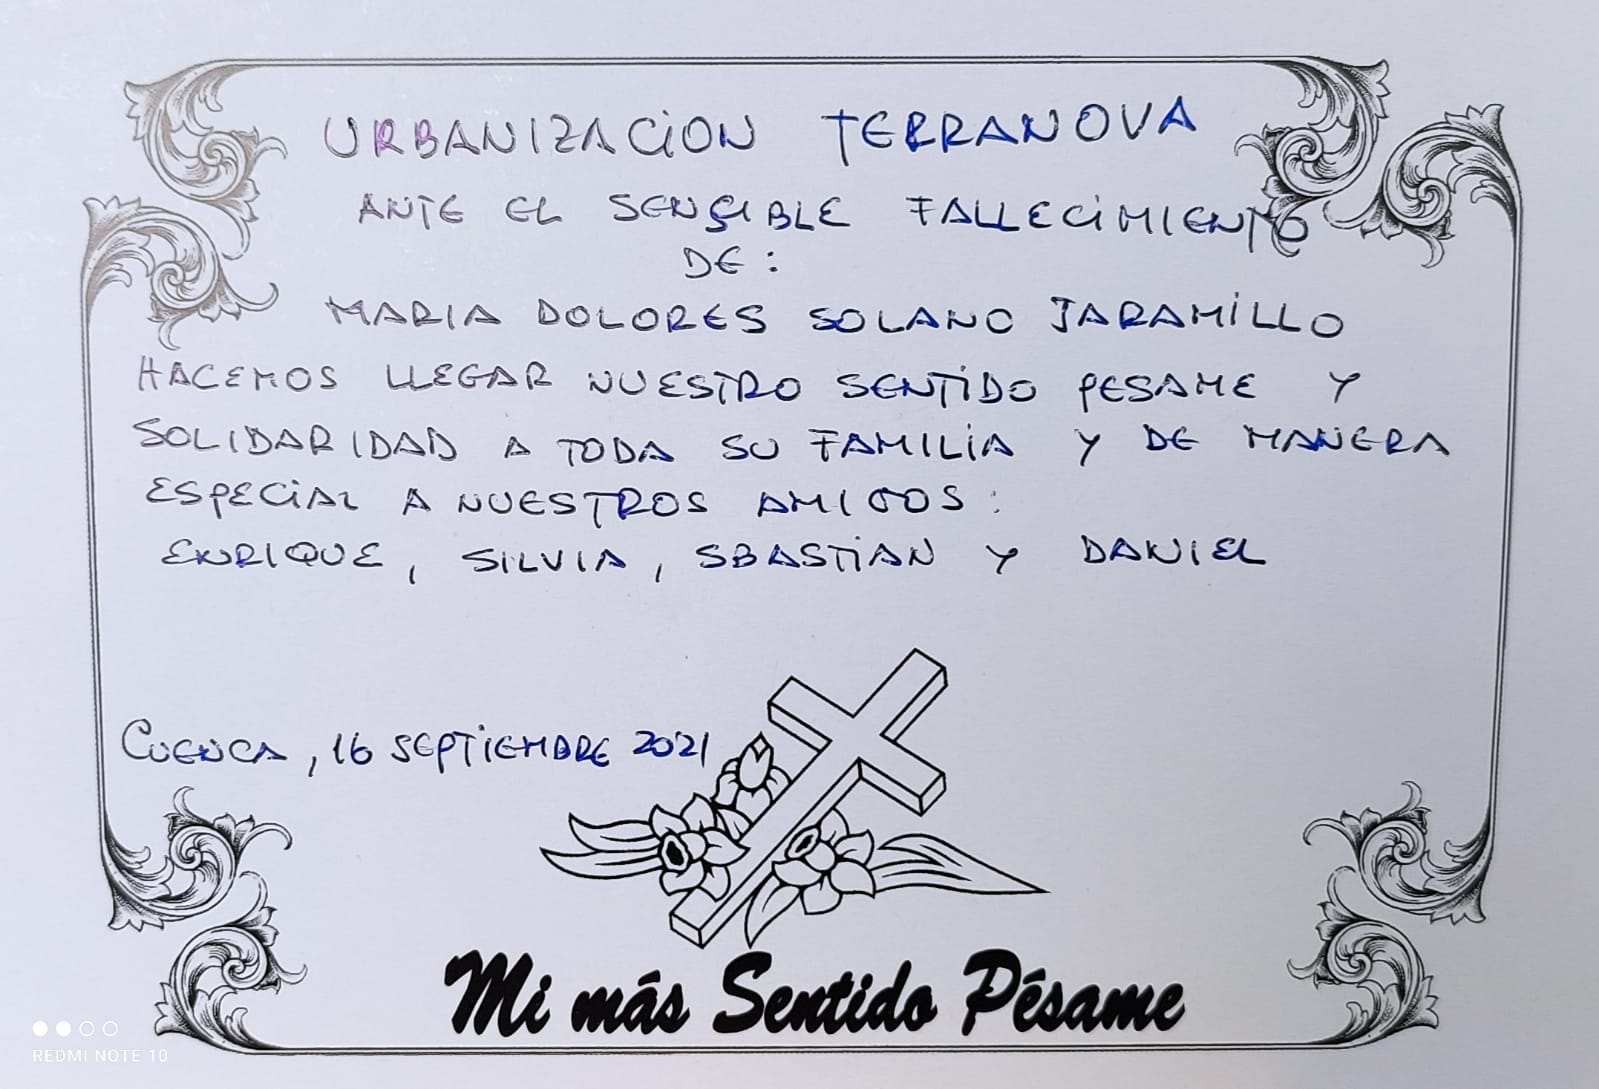 URBANIZACION TERRANOVA
ANTE EL SENSIBLE FALLECIMIENTO
DE:
MARIA DOLORES SOLANO JARAMILLO
HACEMOS LLEGAR NUESTRO SENTIDO PESAME Y
SOLIDARIDAD A TODA SU FAMILIA Y DE MANERA
ESPECIAL A NUESTROS AMIGOS:
ENRIQUE, SILVIA, SBASTIAN Y DANIEL
CUENCA, 16 SEPTIEMBRE 2021
Mi más Sentido Pésame
REDMI NOTE 10